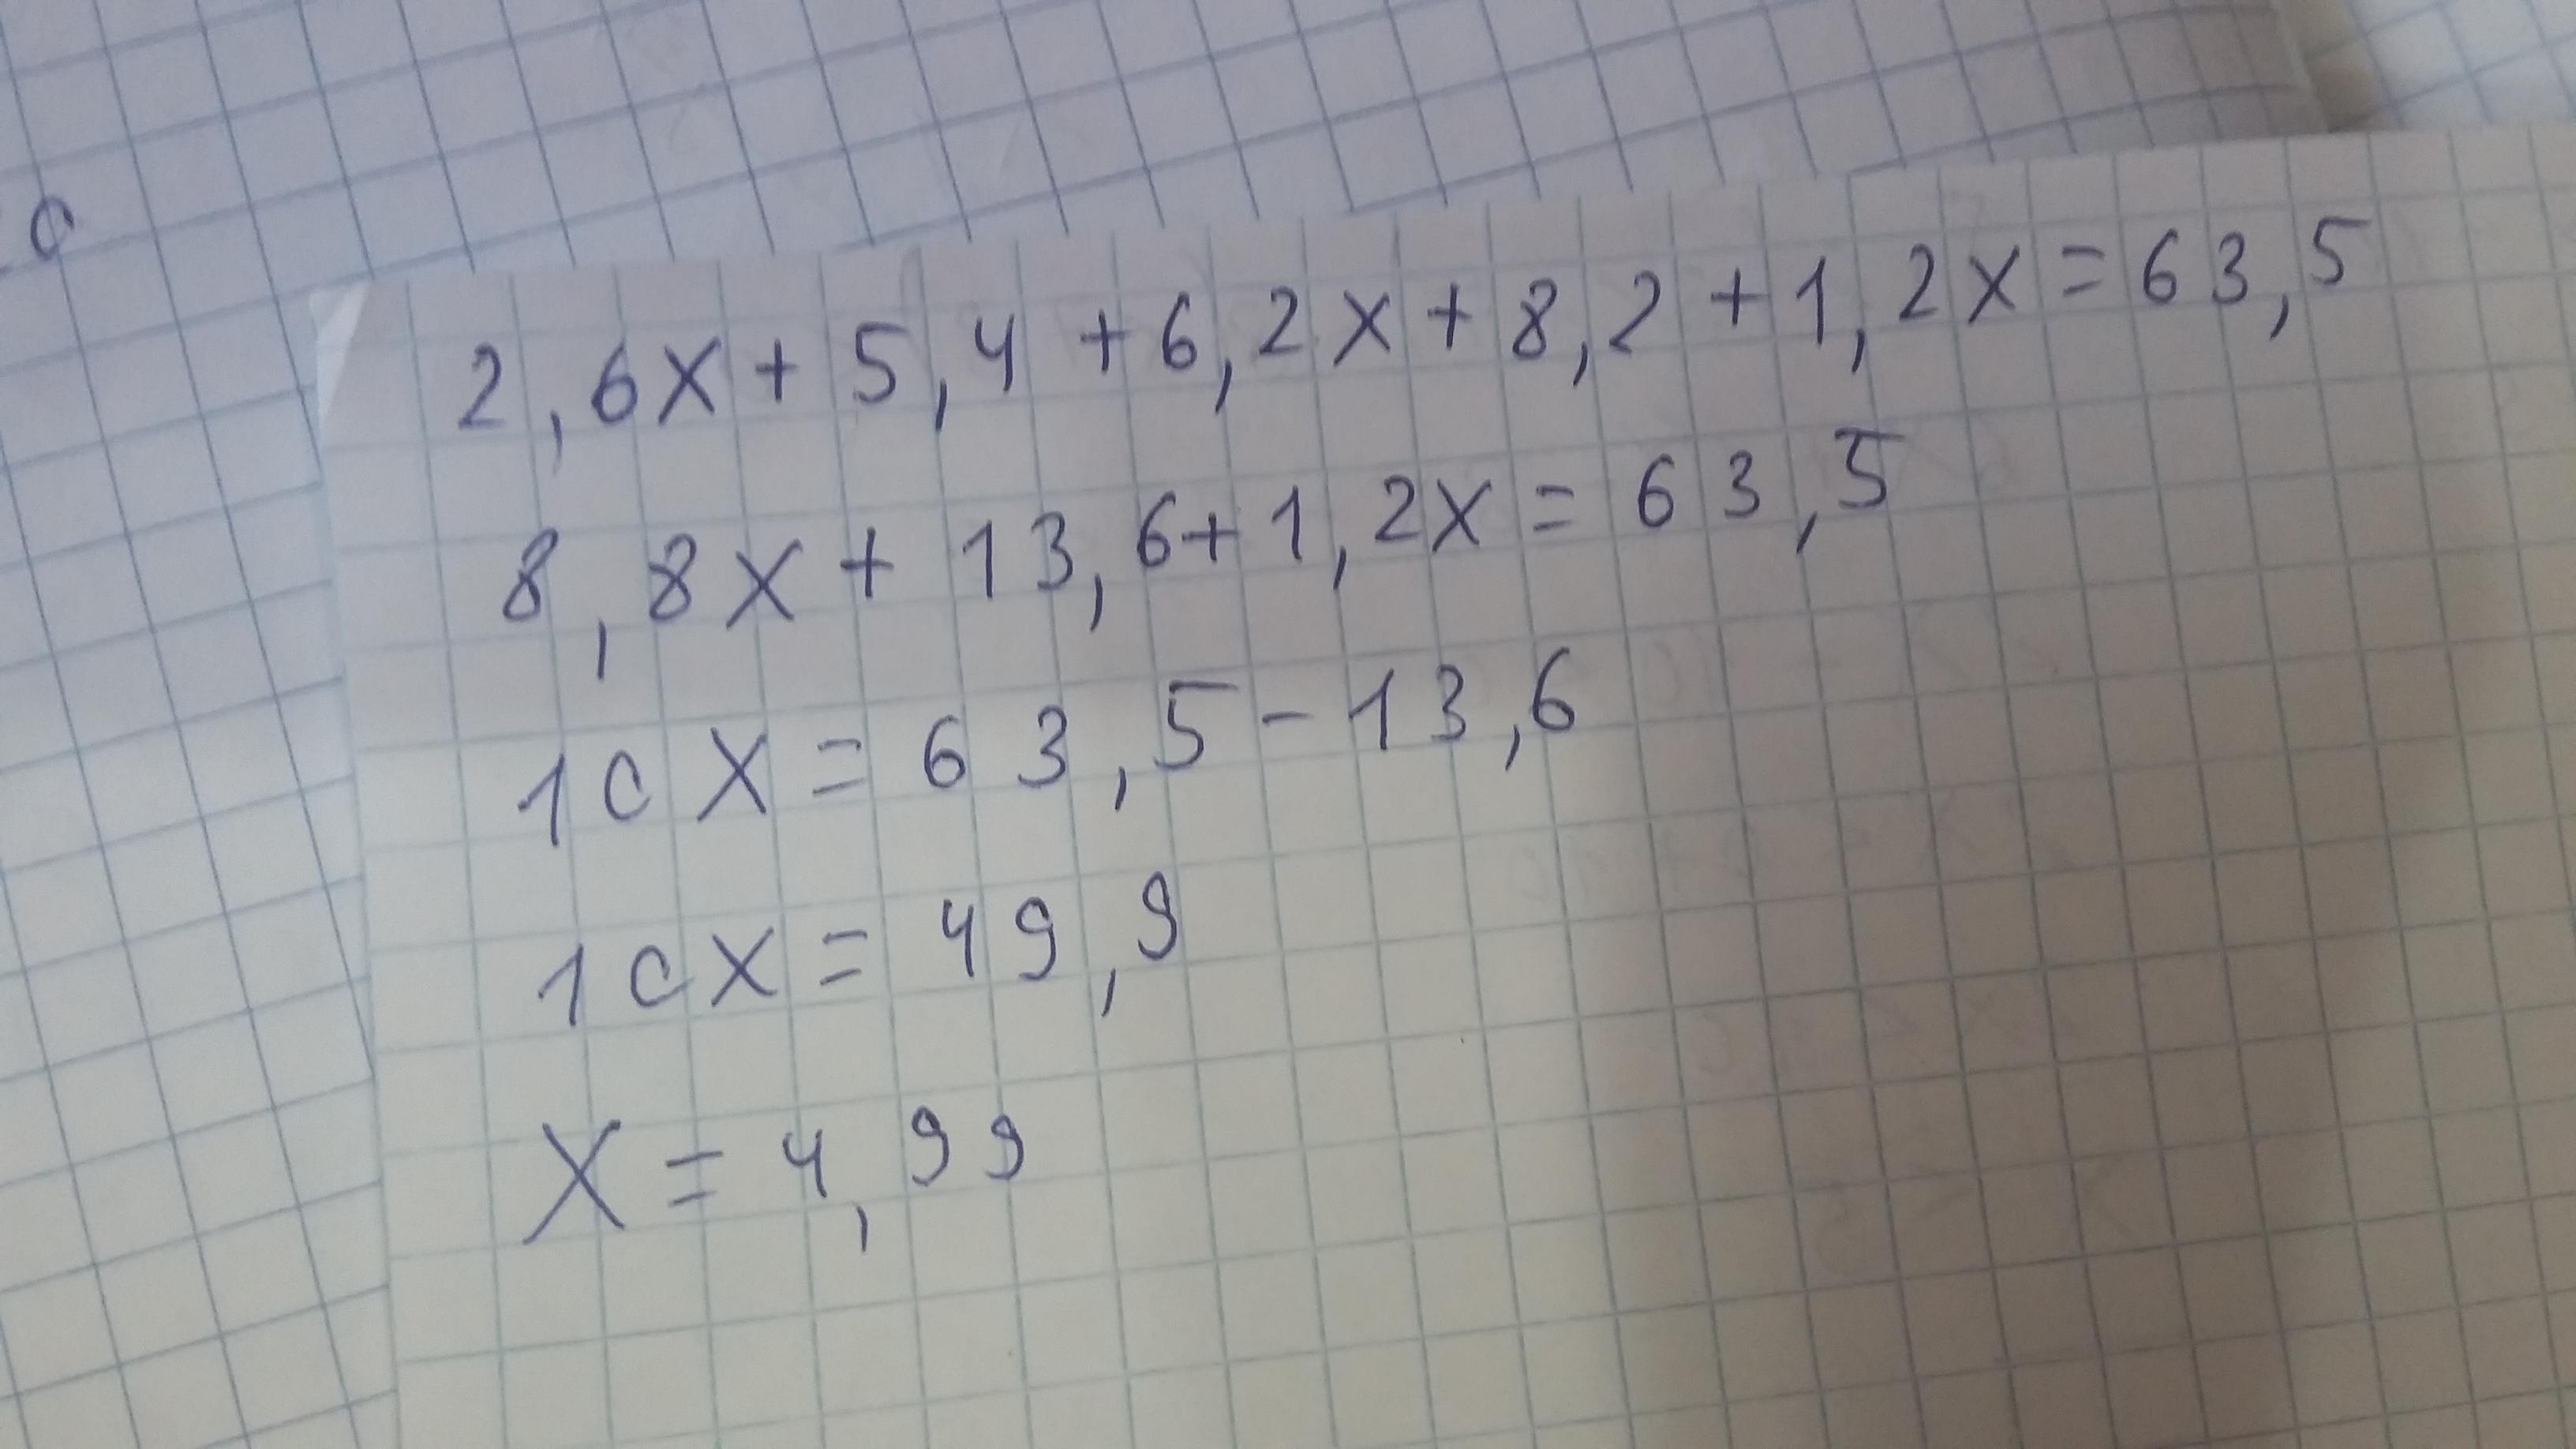 2,6x+5,4+6,2x+8,2+1,2x=63,5
8,8x+13,6+1,2x=63,5
10x=63,5-13,6
10x=49,9
x=4,99